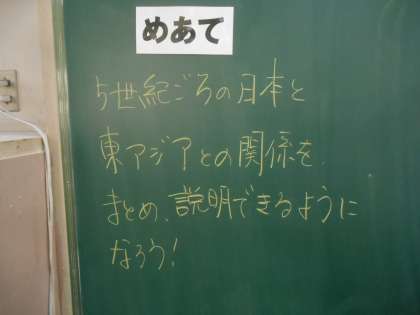 めあて
5世紀ごろの日本と
東アジアとの関係を、
まとめ、説明できるように
なろう!